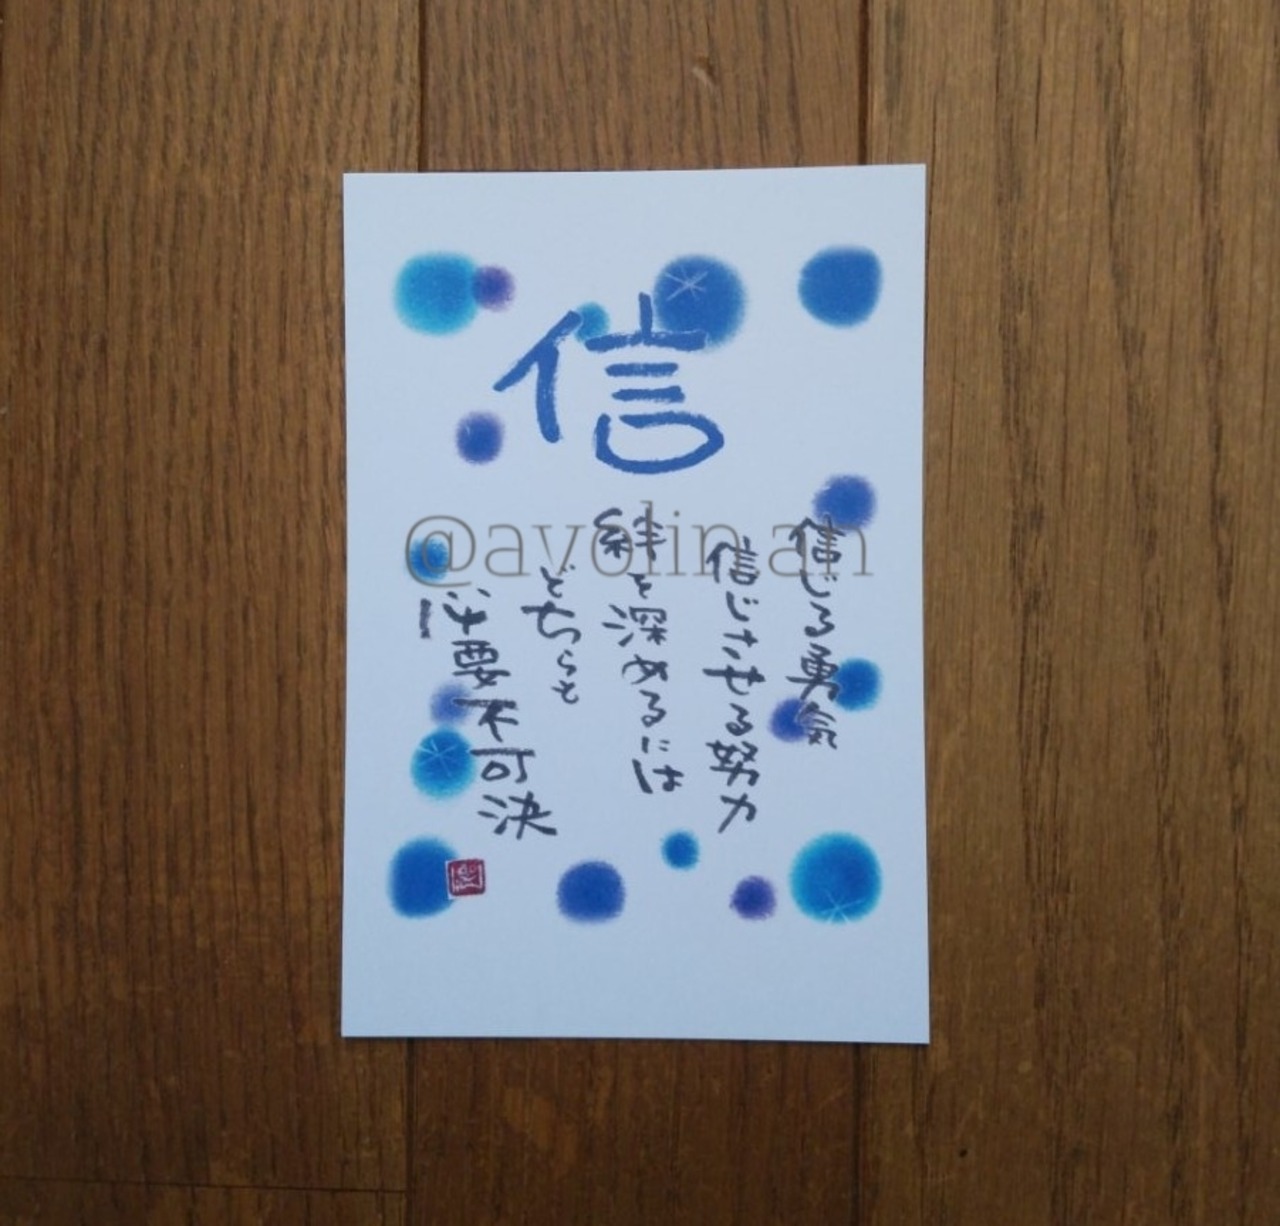 信
信じる勇気
信じさせる努力
絆を深めるには
どちらも
必要不可決
@ayolinan